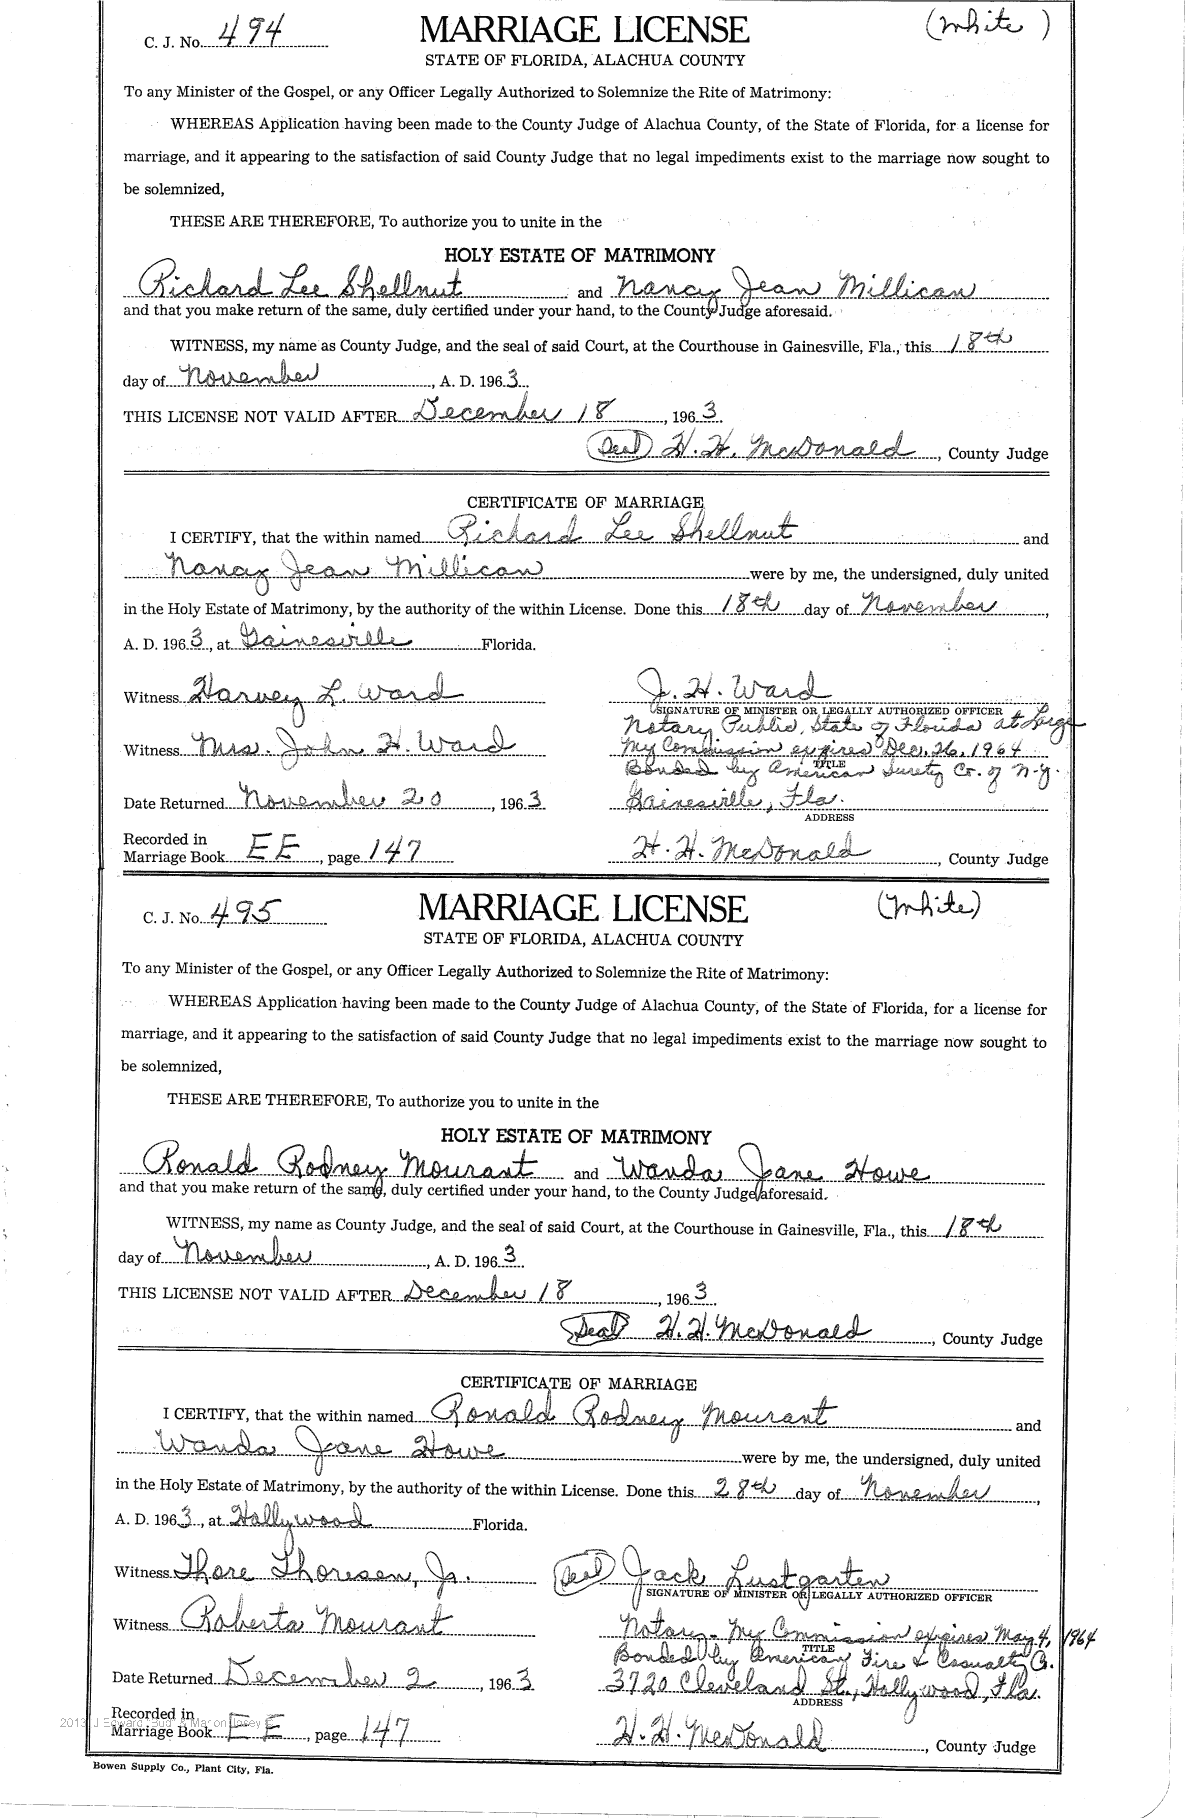 C. J. No. 494 MARRIAGE LICENSE (White)
STATE OF FLORIDA, ALACHUA COUNTY
To any Minister of the Gospel, or any Officer Legally Authorized to Solemnize the Rite of Matrimony:
WHEREAS Application having been made to the County Judge of Alachua County, of the State of Florida, for a license for
marriage, and it appearing to the satisfaction of said County Judge that no legal impediments exist to the marriage now sought to
be solemnized,
THESE ARE THEREFORE, To authorize you to unite in the
HOLY ESTATE OF MATRIMONY
Richard Lee Shellnut and Nancy Jean Millican
and that you make return of the same, duly certified under your hand, to the County Judge aforesaid.
WITNESS, my name as County Judge, and the seal of said Court, at the Courthouse in Gainesville, Fla., this 18th
day of November, A. D. 1963.
THIS LICENSE NOT VALID AFTER December 18, 1963.
(Seal) H. H. McDonald, County Judge
CERTIFICATE OF MARRIAGE
I CERTIFY, that the within named Richard Lee Shellnut and
Nancy Jean Millican were by me, the undersigned, duly united
in the Holy Estate of Matrimony, by the authority of the within License. Done this 18th day of November,
A. D. 1963, at Gainesville Florida.
Witness Harvey L. Ward J. H. Ward
SIGNATURE OF MINISTER OR LEGALLY AUTHORIZED OFFICER
Notary Public, State of Florida at Large
Witness Mrs. John H. Ward My Commission expires Dec. 26, 1964
TITLE
Bonded by American Surety Co. of N.Y.
Date Returned November 20, 1963 Gainesville, Fla.
ADDRESS
Recorded in
Marriage Book EE, page 147 H. H. McDonald, County Judge
C. J. No. 495 MARRIAGE LICENSE (White)
STATE OF FLORIDA, ALACHUA COUNTY
To any Minister of the Gospel, or any Officer Legally Authorized to Solemnize the Rite of Matrimony:
WHEREAS Application having been made to the County Judge of Alachua County, of the State of Florida, for a license for
marriage, and it appearing to the satisfaction of said County Judge that no legal impediments exist to the marriage now sought to
be solemnized,
THESE ARE THEREFORE, To authorize you to unite in the
HOLY ESTATE OF MATRIMONY
Ronald Rodney Mourant and Wanda Jeane Howe
and that you make return of the same, duly certified under your hand, to the County Judge aforesaid.
WITNESS, my name as County Judge, and the seal of said Court, at the Courthouse in Gainesville, Fla., this 18th
day of November, A. D. 1963.
THIS LICENSE NOT VALID AFTER December 18, 1963.
(Seal) H. H. McDonald, County Judge
CERTIFICATE OF MARRIAGE
I CERTIFY, that the within named Ronald Rodney Mourant and
Wanda Jeane Howe were by me, the undersigned, duly united
in the Holy Estate of Matrimony, by the authority of the within License. Done this 28th day of November,
A. D. 1963, at Hollywood Florida.
Witness Thore Thoresen, Jr. (Seal) Jack Lustgarten
SIGNATURE OF MINISTER OR LEGALLY AUTHORIZED OFFICER
Witness Roberta Mourant Notary - My Commission expires May 4, 1964
TITLE
Bonded by American Fire & Casualty Co.
Date Returned December 2, 1963 3720 Cleveland St., Hollywood, Fla.
ADDRESS
Recorded in
Marriage Book EE, page 147 H. H. McDonald, County Judge
Bowen Supply Co., Plant City, Fla.